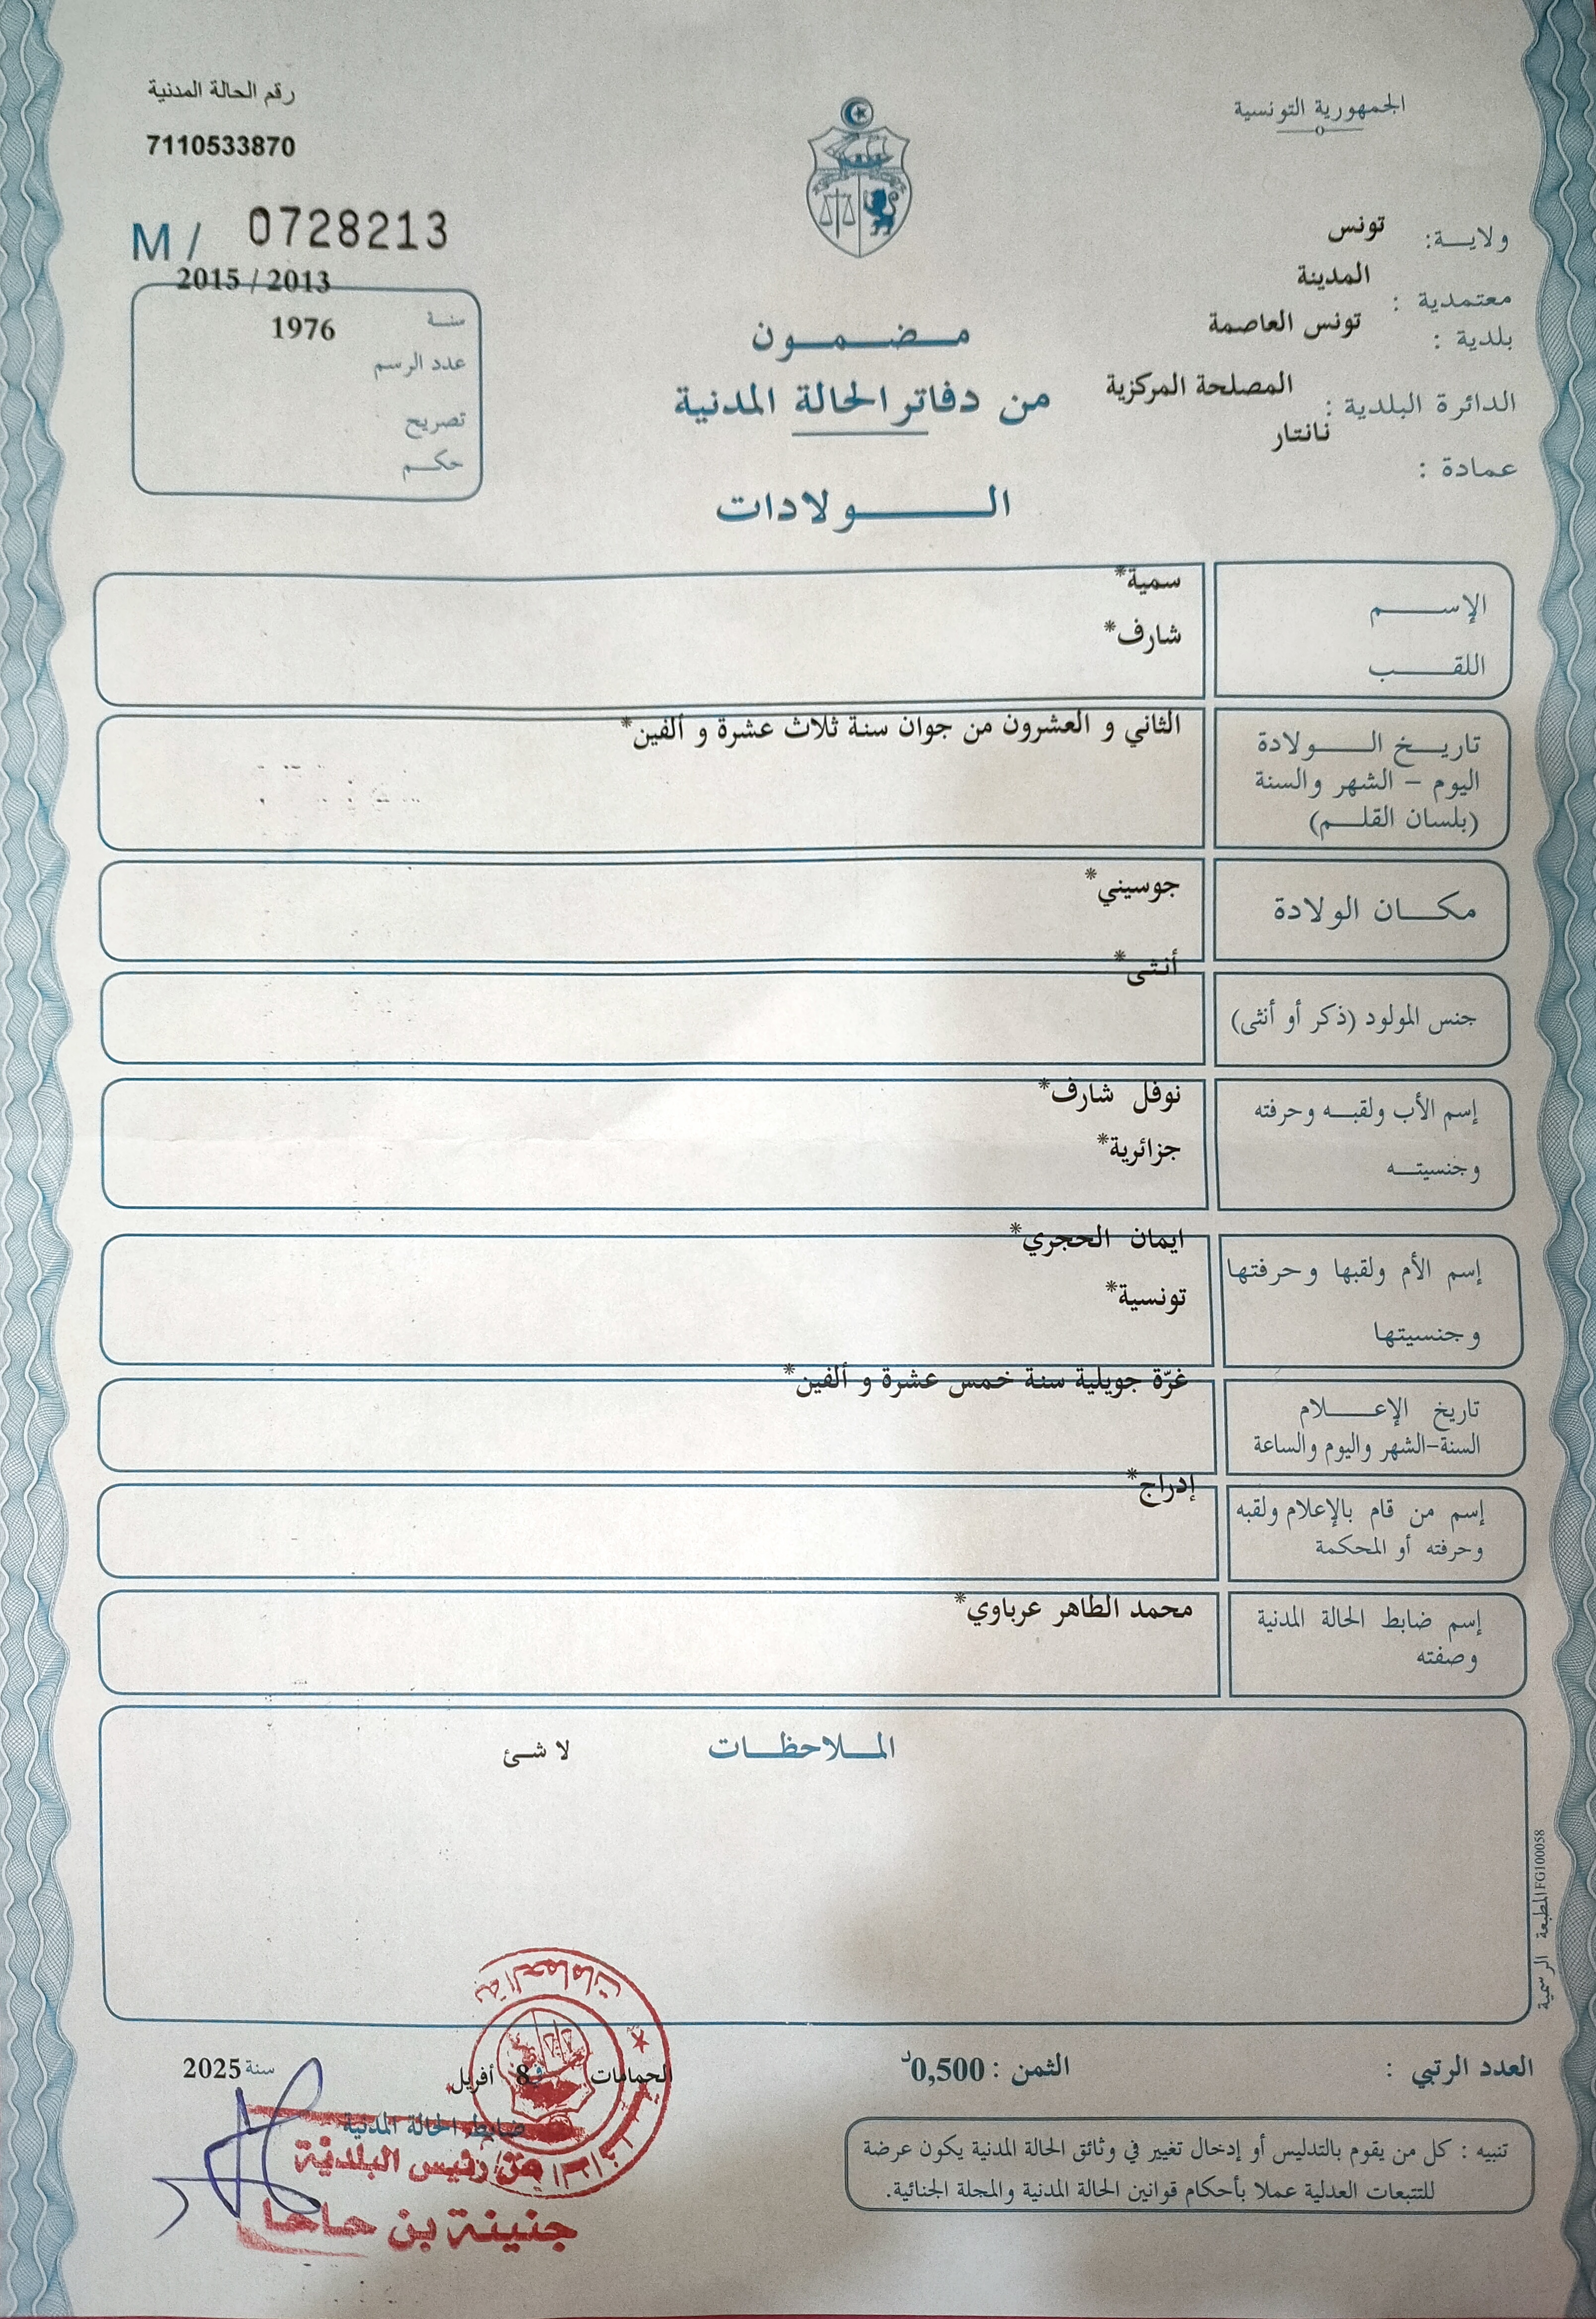 الجمهورية التونسية
ولايـــة: تونس
معتمدية : المدينة
بلدية : تونس العاصمة
الدائرة البلدية : المصلحة المركزية
نانتار
عمادة :
رقم الحالة المدنية
7110533870
M / 0728213
2015 / 2013
سنة
1976
عدد الرسم
تصريح
حكم
مضمون
من دفاتر الحالة المدنية
الولادات
الإسم
سمية*
اللقب
شارف*
تاريخ الولادة
اليوم - الشهر والسنة
(بلسان القلم)
الثاني و العشرون من جوان سنة ثلاث عشرة و ألفين*
مكان الولادة
جوسيني*
جنس المولود (ذكر أو أنثى)
أنثى*
إسم الأب ولقبه وحرفته
وجنسيته
نوفل شارف*
جزائرية*
إسم الأم ولقبها وحرفتها
وجنسيتها
ايمان الحجري*
تونسية*
تاريخ الإعلام
السنة-الشهر واليوم والساعة
غرّة جويلية سنة خمس عشرة و ألفين*
إسم من قام بالإعلام ولقبه
وحرفته أو المحكمة
إدراج*
إسم ضابط الحالة المدنية
وصفته
محمد الطاهر عرباوي*
الملاحظات
لا شئ
المطبعة الرسمية FG100058
العدد الرتبي :
الثمن : 0,500د
الحمامات في 8 أفريل* سنة 2025
ضابط الحالة المدنية
عن رئيس البلدية
جنينة بن حاحا
تنبيه : كل من يقوم بالتدليس أو إدخال تغيير في وثائق الحالة المدنية يكون عرضة
للتتبعات العدلية عملا بأحكام قوانين الحالة المدنية والمجلة الجنائية.